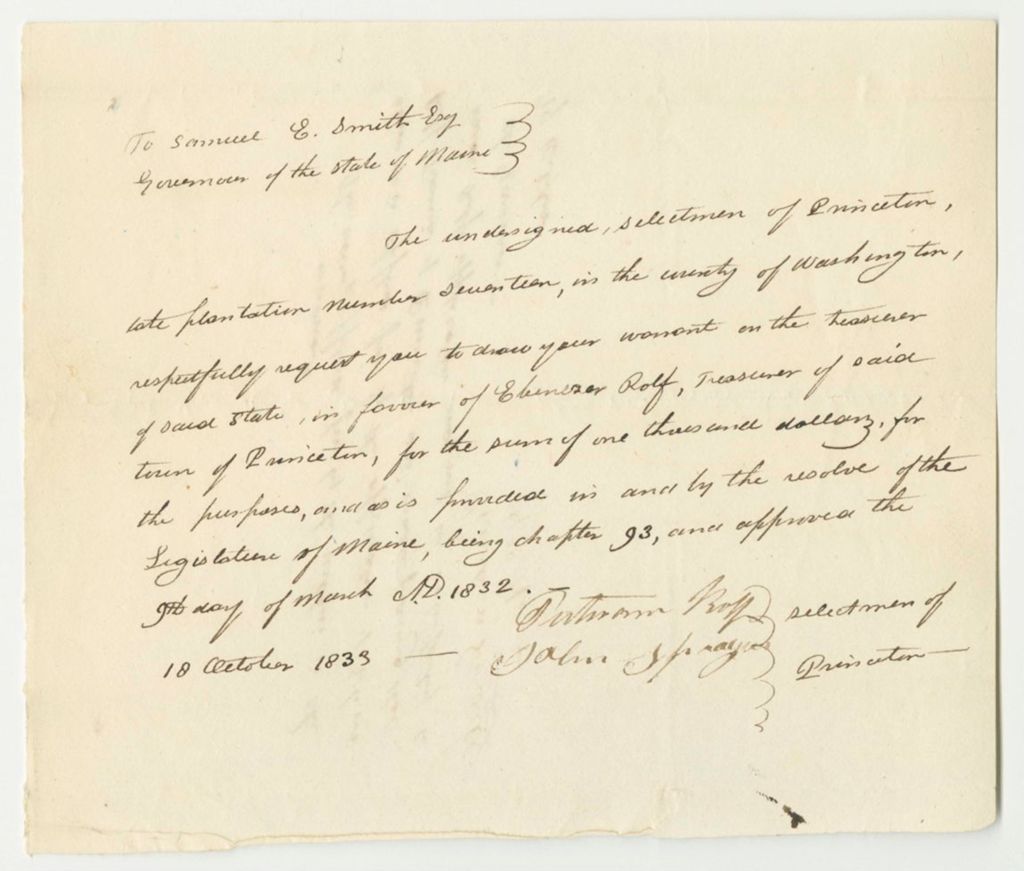 To Samuel E. Smith Esq
Governour of the State of Maine
The undersigned, selectmen of Princeton,
late plantation number seventeen, in the county of Washington,
respectfully request you to draw your warrant on the treasurer
of said State, in favour of Ebenezer Rolf, Treasurer of said
town of Princeton, for the sum of one thousand dollars, for
the purposes, and as is provided in and by the resolve of the
Legislature of Maine, being chapter 93, and approved the
9th day of March A.D. 1832.
18 October 1833 — Putnam Rolf
John Sprague
selectmen of
Princeton —